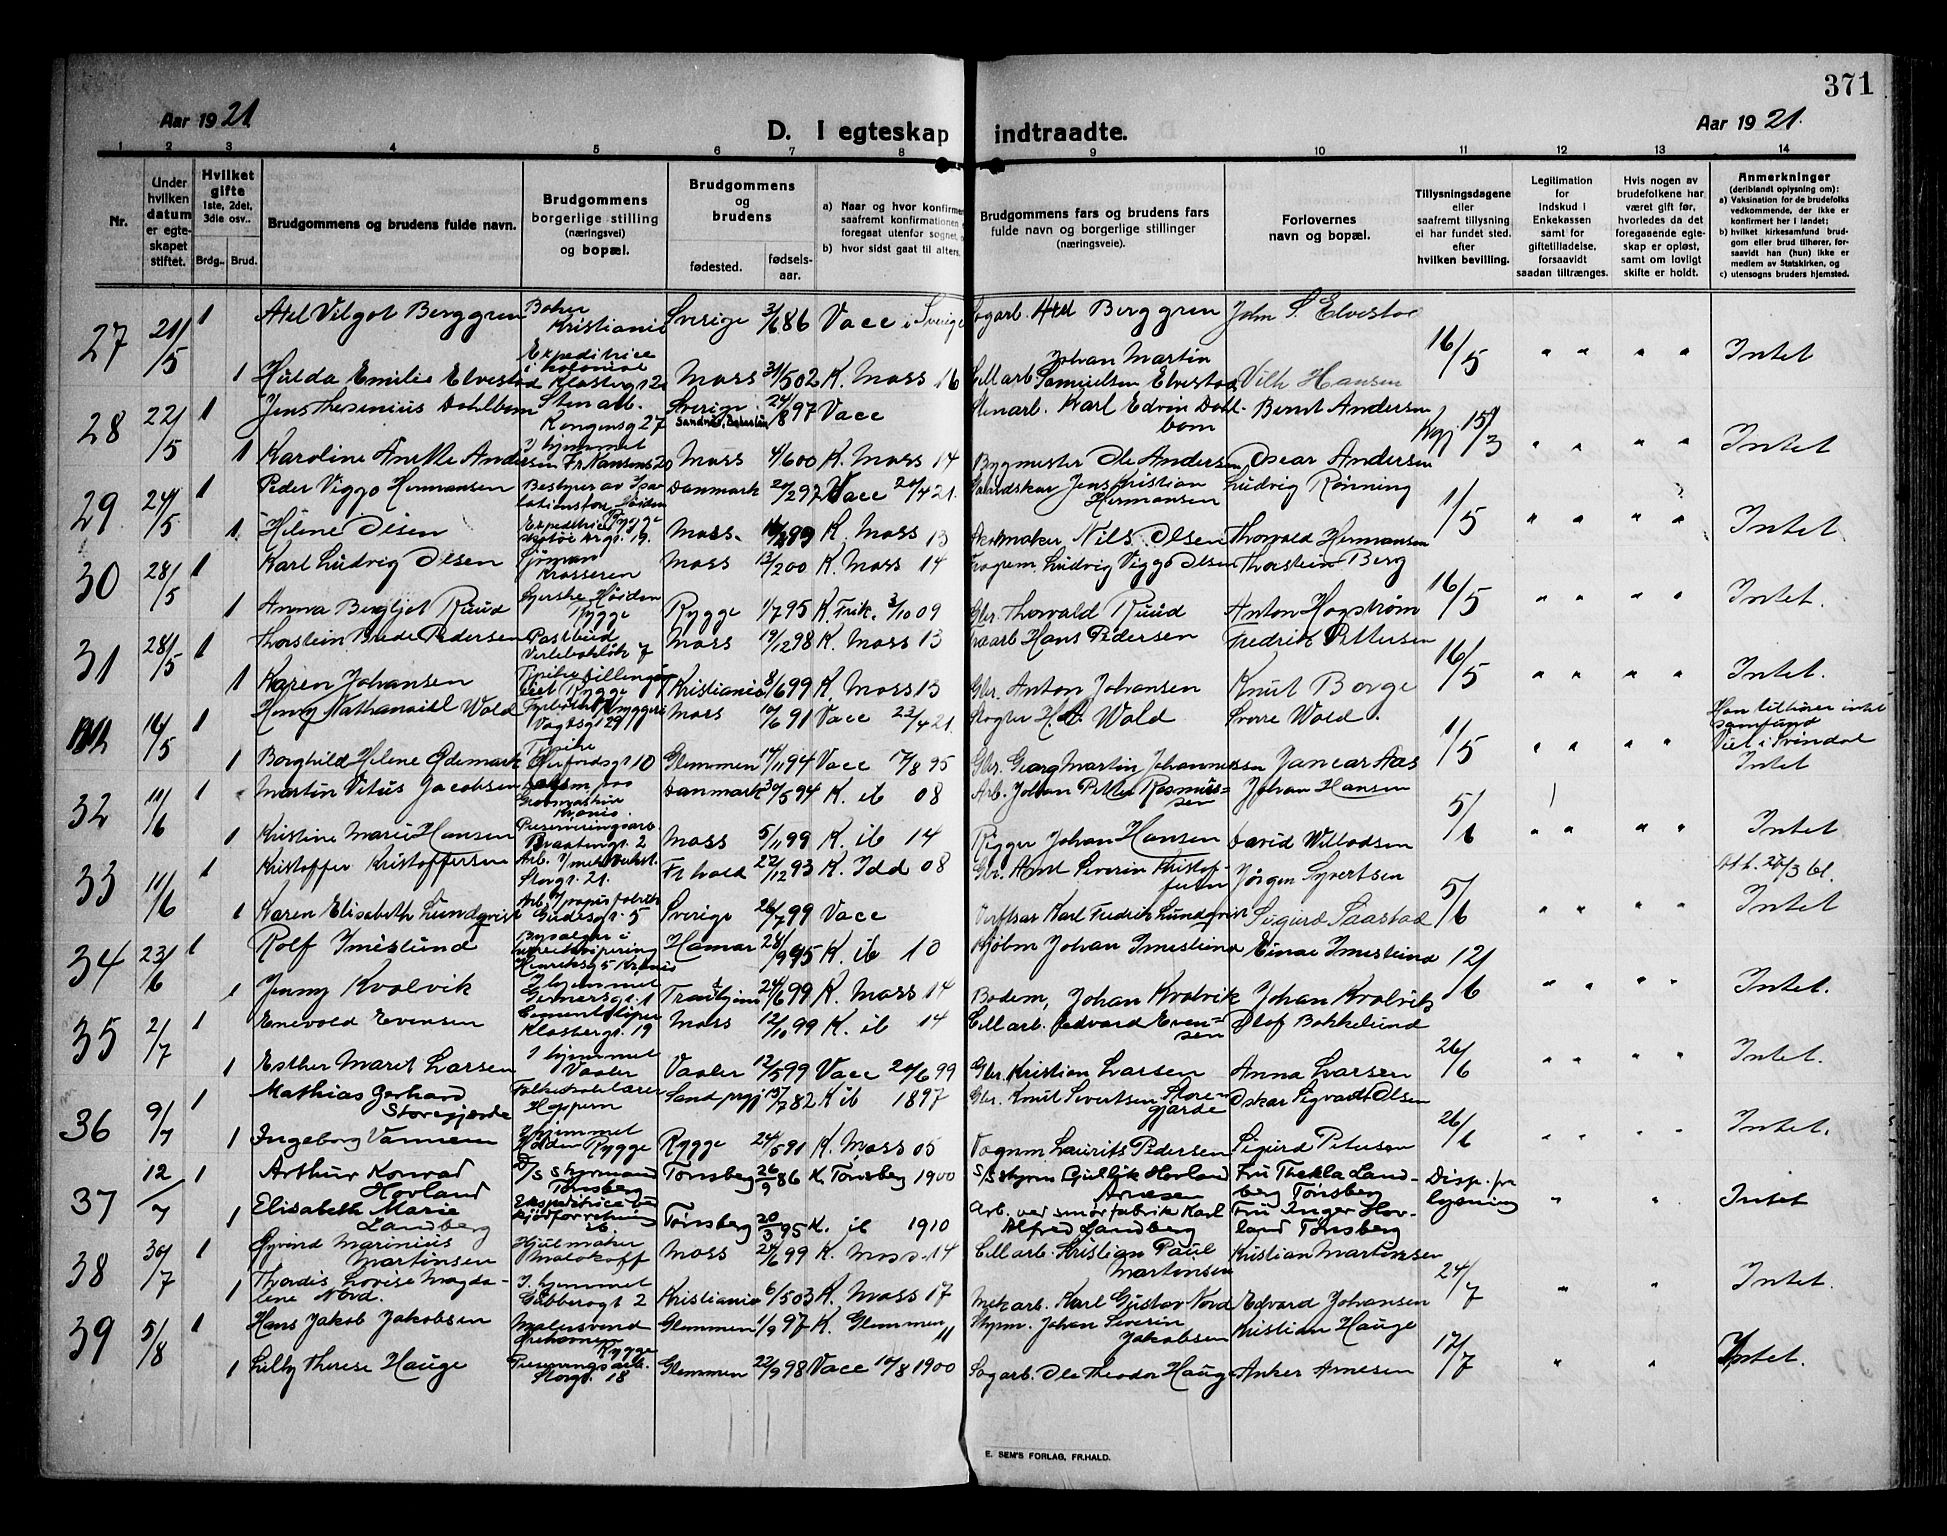 371
Aar 1921
D. I egteskap indtraadte.
Aar 1921.
1 2 3 4 5 6 7 8 9 10 11 12 13 14
Nr.
Under hvilken datum er egteskapet stiftet.
Hvilket gifte 1ste, 2det, 3die osv..
Brdg. Brud.
Brudgommens og brudens fulde navn.
Brudgommens borgerlige stilling (næringsvei) og bopæl.
Brudgommens og brudens
fødested. fødselsaar.
a) Naar og hvor konfirm
saafremt konfirmationen
foregaat utenfor sognet,
b) hvor sidst gaat til alters.
Brudgommens fars og brudens fars fulde navn og borgerlige stillinger (næringsveie).
Forlovernes navn og bopæl.
Tillysningsdagene eller saafremt tillysning ei har fundet sted, efter hvilken bevilling.
Legitimation for Indskud i Enkekassen samt for giftetilladelse, forsaavidt saadan tiltrænges.
Hvis nogen av brudefolkene har været gift før, hvorledes da det foregaaende egteskap er opløst, samt om lovligt skifte er holdt.
Anmerkninger (deriblandt oplysning om): a) Vaksination for de brudefolks vedkommende, der ikke er konfirmert her i landet; b) hvilket kirkesamfund brudgom eller brud tilhører, forsaavidt han (hun) ikke er medlem av Statskirken, og c) utensogns bruders hjemsted.
27 21/5 1 Axel Vilgot Berggren Baker Kristiania Sverige 3/6 86 Vacc i Sverige Sagarb. Axel Berggren John S. Elvestad 16/5 " " " " Intet
1 Hulda Emilie Elvestad Expeditrice i kolonial Klosterg 12 Moss 31/5 02 K. Moss 16 Cellarb. Johan Martin Samuelsen Elvestad Vilh Hansen
28 22/5 1 Jens Thesenius Dahlbom Stenarb. Kongensg 27 Sverige 24/8 97 Vacc Stenarb. Karl Edvin Dahlbom Bernt Andersen Kgj 15/3 " " " " Intet
1 Karoline Anette Andersen I hjemmet Fr. Nansens 20 Moss 4/6 00 K. Moss 14 Bygmester Ole Andersen Oscar Andersen
29 24/5 1 Peder Viggo Hermansen Bestyrer av Danmark 20/2 97 Vacc 20/4 21. Jens Kristian Hermansen Ludvig Rønning 1/5 " " " " Intet
1 Helene Olsen Expeditrice Moss. K. Moss 13 Nils Olsen Thorvald Hermansen
30 28/5 1 Karl Ludvig Olsen Sjømann Krosseren Moss 13/2 00 K. Moss 14 Ludvig Viggo Olsen Thorstein Berg 16/5 " " " " Intet.
1 Anna Bergljot Ruud Høiden Rygge Rygge 1/7 95 K. Frik. 3/10 09 Gbr. Thorvald Ruud Anton Hogstrøm
31 28/5 1 Thorstein Brede Pedersen Postbud Moss 19/12 98 K. Moss 13 Hans Pedersen Fredrik Pettersen 16/5 " " " " Intet.
1 Karen Johansen Rygge Kristiania 8/6 99 K. Moss 13 Gbr. Anton Johansen Knut Borge
14/5 1 Henry Nathanael Wold Vogtsg 29 Moss 10/6 91 Vacc 23/4 21. Wold Sverre Wold. 1/5 " " " " Han tilhører intet samfund Viet i Svindal Intet
1 Borghild Helene Ødemark 10 Glemmen 14/11 94 Vacc 17/8 95 Gbr. Georg Martin Johannessen Aas
32 11/6 1 Martin Vitus Jacobsen Danmark 30/5 94 K. ib 08 Arb. Johan Petter Rasmussen Johan Hansen 5/6 " " " " Intet
1 Kristine Marie Hansen Preserveringsarb Braatengt. 2 Moss 5/11 99 K. ib 14 Rigger Johan Hansen David Willadsen
33 11/6 1 Kristoffer Kristoffersen Storg. 21. Fr. hald 22/12 93 K. Idd 08 Gbr. Severin Kristoffersen Jørgen Syvertsen 5/6 " " " " Intet
1 Karen Elisabeth Lundqvist 5 Sverige 26/7 99 Vacc Verftsar Karl Fredrik Lundqvist Sigurd Saastad
34 23/6 1 Rolf Imislund Henriksg 5 Hamar 28/9 95 K. ib 10 Kjøbm Johan Imislund Einar Imislund 12/6 " " " " Intet.
1 Jenny Kvalvik I hjemmet Gernersgt. 1 24/6 99 K. Moss 14 Johan Kvalvik Johan Kvalvik
35 2/7 1 Enevold Evensen Klosterg. 19 Moss 12/10 99 K. ib 14 Cellarb. Edvard Evensen Olof Bakkelund 26/6 " " " " Intet.
1 Esther Maret Larsen I hjemmet Vaaler Vaaler 12/5 99 Vacc 20/6 99 Gbr. Kristian Larsen Anna Larsen
36 9/7 1 Mathias Gerhard Storegjerde Folkeskolelærer Sand prgj 15/7 82 K ib 1897 Gbr. Knut Sivertsen Storegjerde Oskar Sigvald Olsen 26/6 " " " " Intet.
1 Ingeborg Vannem I hjemmet Rygge Rygge 24/5 91 K. Moss 05 Vognm Laurits Pedersen Sigurd Petersen
37 12/7 1 Arthur Konrad Hovland D/S styrmand Tønsberg Tønsberg 26/9 86 K Tønsberg 1900 S/S styrm Gullik Hovland Arnesen Fru Thekla Landberg Tønsberg Disp. fra lysning " " Intet
1 Elisabeth Marie Landberg Ekspeditrice ved kjødforretning ib Tønsberg 20/3 95 K. ib 1910 Arb. ved smørfabrik Karl Alfred Landberg Fru Inger Hovland Tønsberg
38 30/7 1 Øyvind Marinius Martinsen Hjulmaker Malakoff Moss 24/6 99 K. Moss 14 Cellarb. Kristian Paul Martinsen Kristian Martinsen 24/7 " " Intet.
1 Thordis Lovise Magdalene Nord. I hjemmet Gubberogt 2 Kristiania 6/5 03 K. Moss 17 Mekarb. Karl Gustav Nord Edvard Johansen
39 5/8 1 Hans Jakob Jakobsen Malersvend Rygge Glemmen 1/9 97 K. Glemmen 11 Styrm. Johan Severin Jakobsen Kristian Hauge 17/7 " " Intet.
1 Lilly Therese Hauge Preserveringsarb. Storgt. 18 Glemmen 22/9 98 Vacc 14/8 1900 Sagarb. Ole Theodor Hauge Anker Arnesen
E. SEM'S FORLAG, FR.HALD.